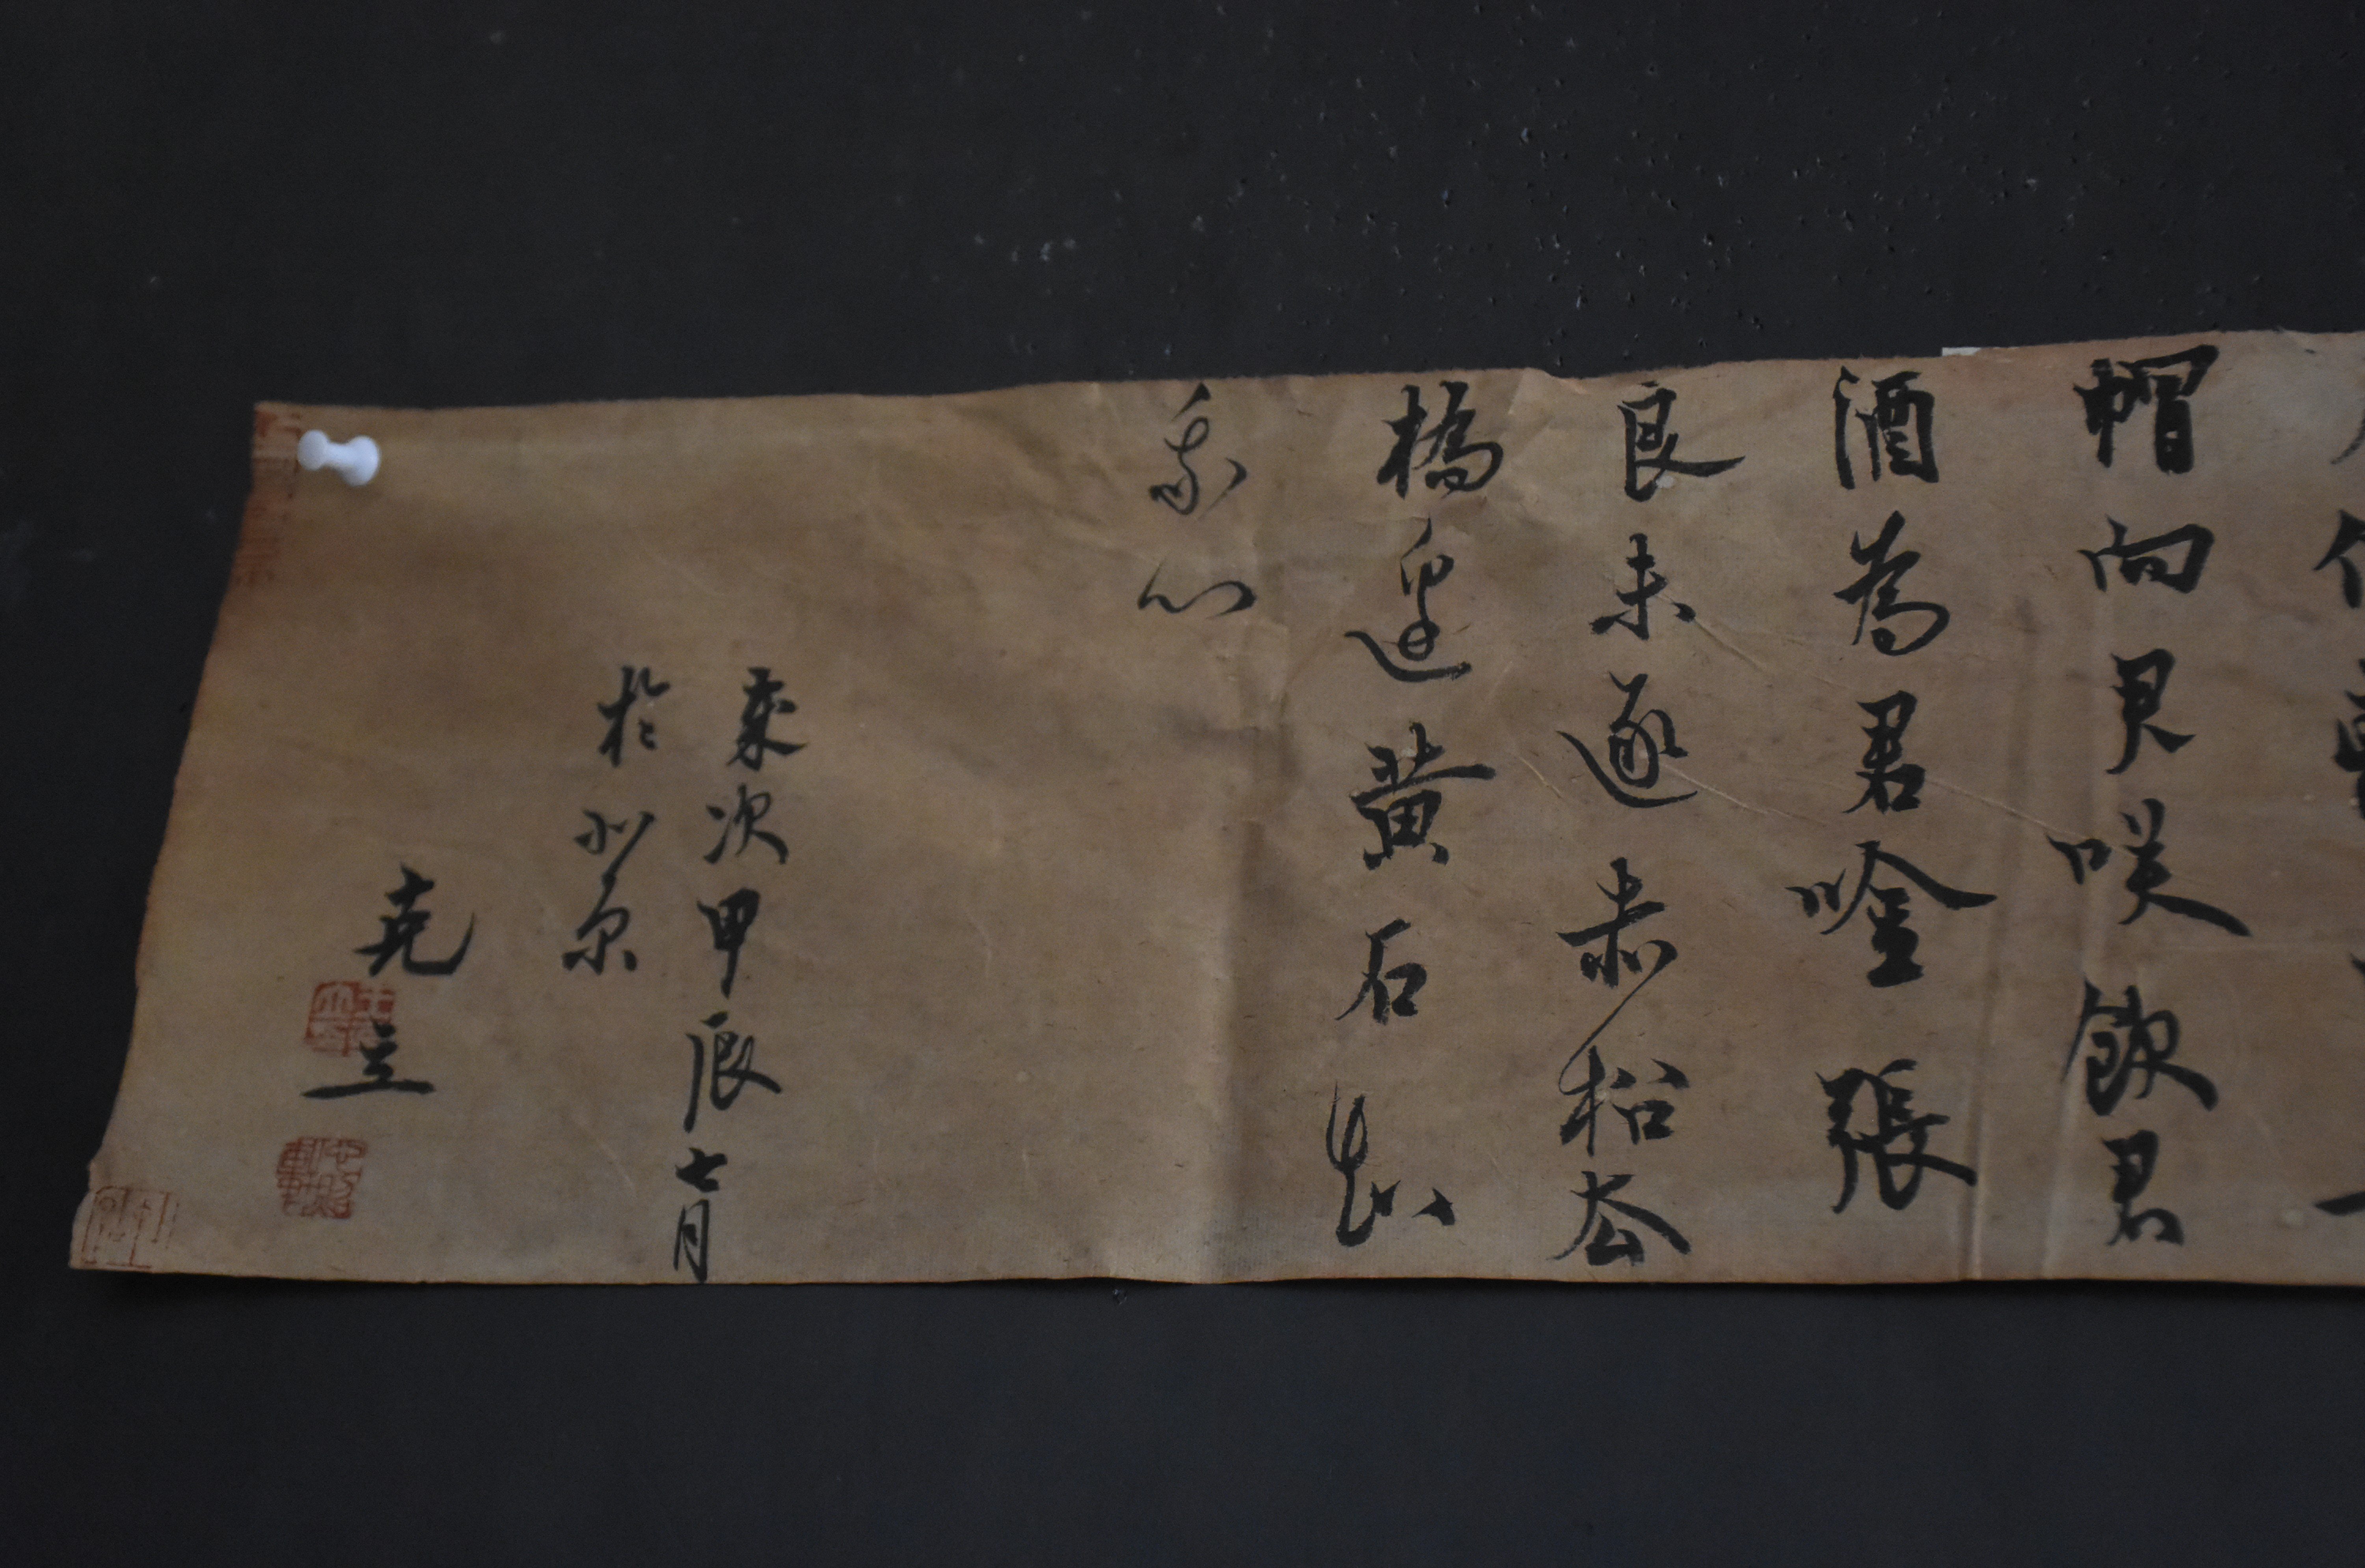 帽向君笑飲君
酒為君唫張
良未遂赤松去
橋邊黃石知
我心
歲次甲辰七月
於北京
克立